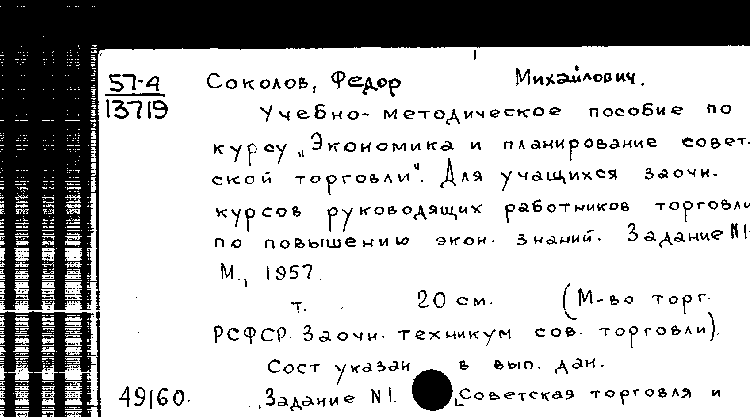 57-4 Соколов, Федор Михайлович.
13719 Учебно-методическое пособие по
курсу „Экономика и планирование совет-
ской торговли". Для учащихся заочн.
курсов руководящих работников торговли
по повышению экон. знаний. Задание №1-
М., 1957.
т. 20 см. (М-во торг.
РСФСР. Заочн. техникум сов. торговли).
Сост указан в вып. дан.
49160. Задание №1. Советская торговля и